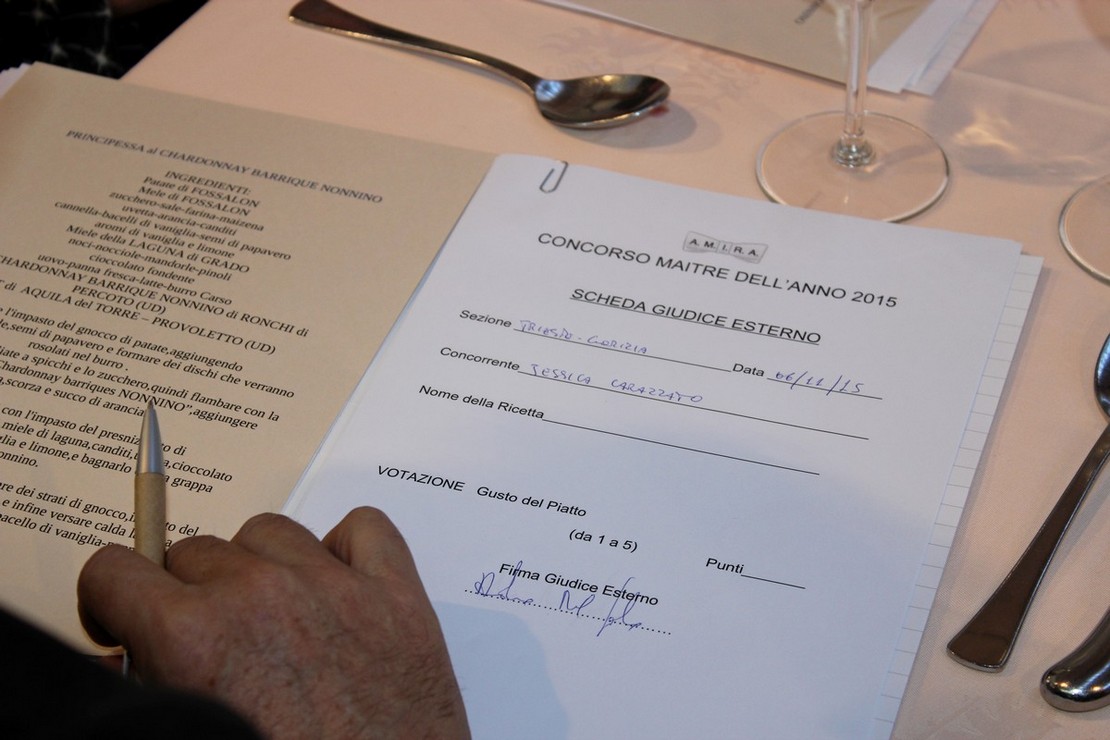 PRINCIPESSA al CHARDONNAY BARRIQUE NONNINO
INGREDIENTI:
Patate di FOSSALON
Mele di FOSSALON
zucchero-sale-farina-maizena
uvetta-arancia-canditi
cannella-bacelli di vaniglia-semi di papavero
aromi di vaniglia e limone
Miele della LAGUNA di GRADO
noci-nocciole-mandorle-pinoli
cioccolato fondente
uovo-panna fresca-latte-burro Carso
CHARDONNAY BARRIQUE NONNINO di RONCHI di
PERCOTO (UD)
di AQUILA del TORRE – PROVOLETTO (UD)
l'impasto del gnocco di patate,aggiungendo
semi di papavero e formare dei dischi che verranno
rosolati nel burro .
a spicchi e lo zucchero,quindi flambare con la
Chardonnay barriques NONNINO",aggiungere
,scorza e succo di arancia
con l'impasto del di
miele di laguna,canditi, ,cioccolato
e limone,e bagnarlo grappa
dei strati di gnocco, del
e infine versare calda
di
A.M.I.R.A.
CONCORSO MAITRE DELL'ANNO 2015
SCHEDA GIUDICE ESTERNO
Sezione TRIESTE-GORIZIA Data 06/11/15
Concorrente JESSICA CARAZZATO
Nome della Ricetta
VOTAZIONE Gusto del Piatto
(da 1 a 5)
Punti
Firma Giudice Esterno